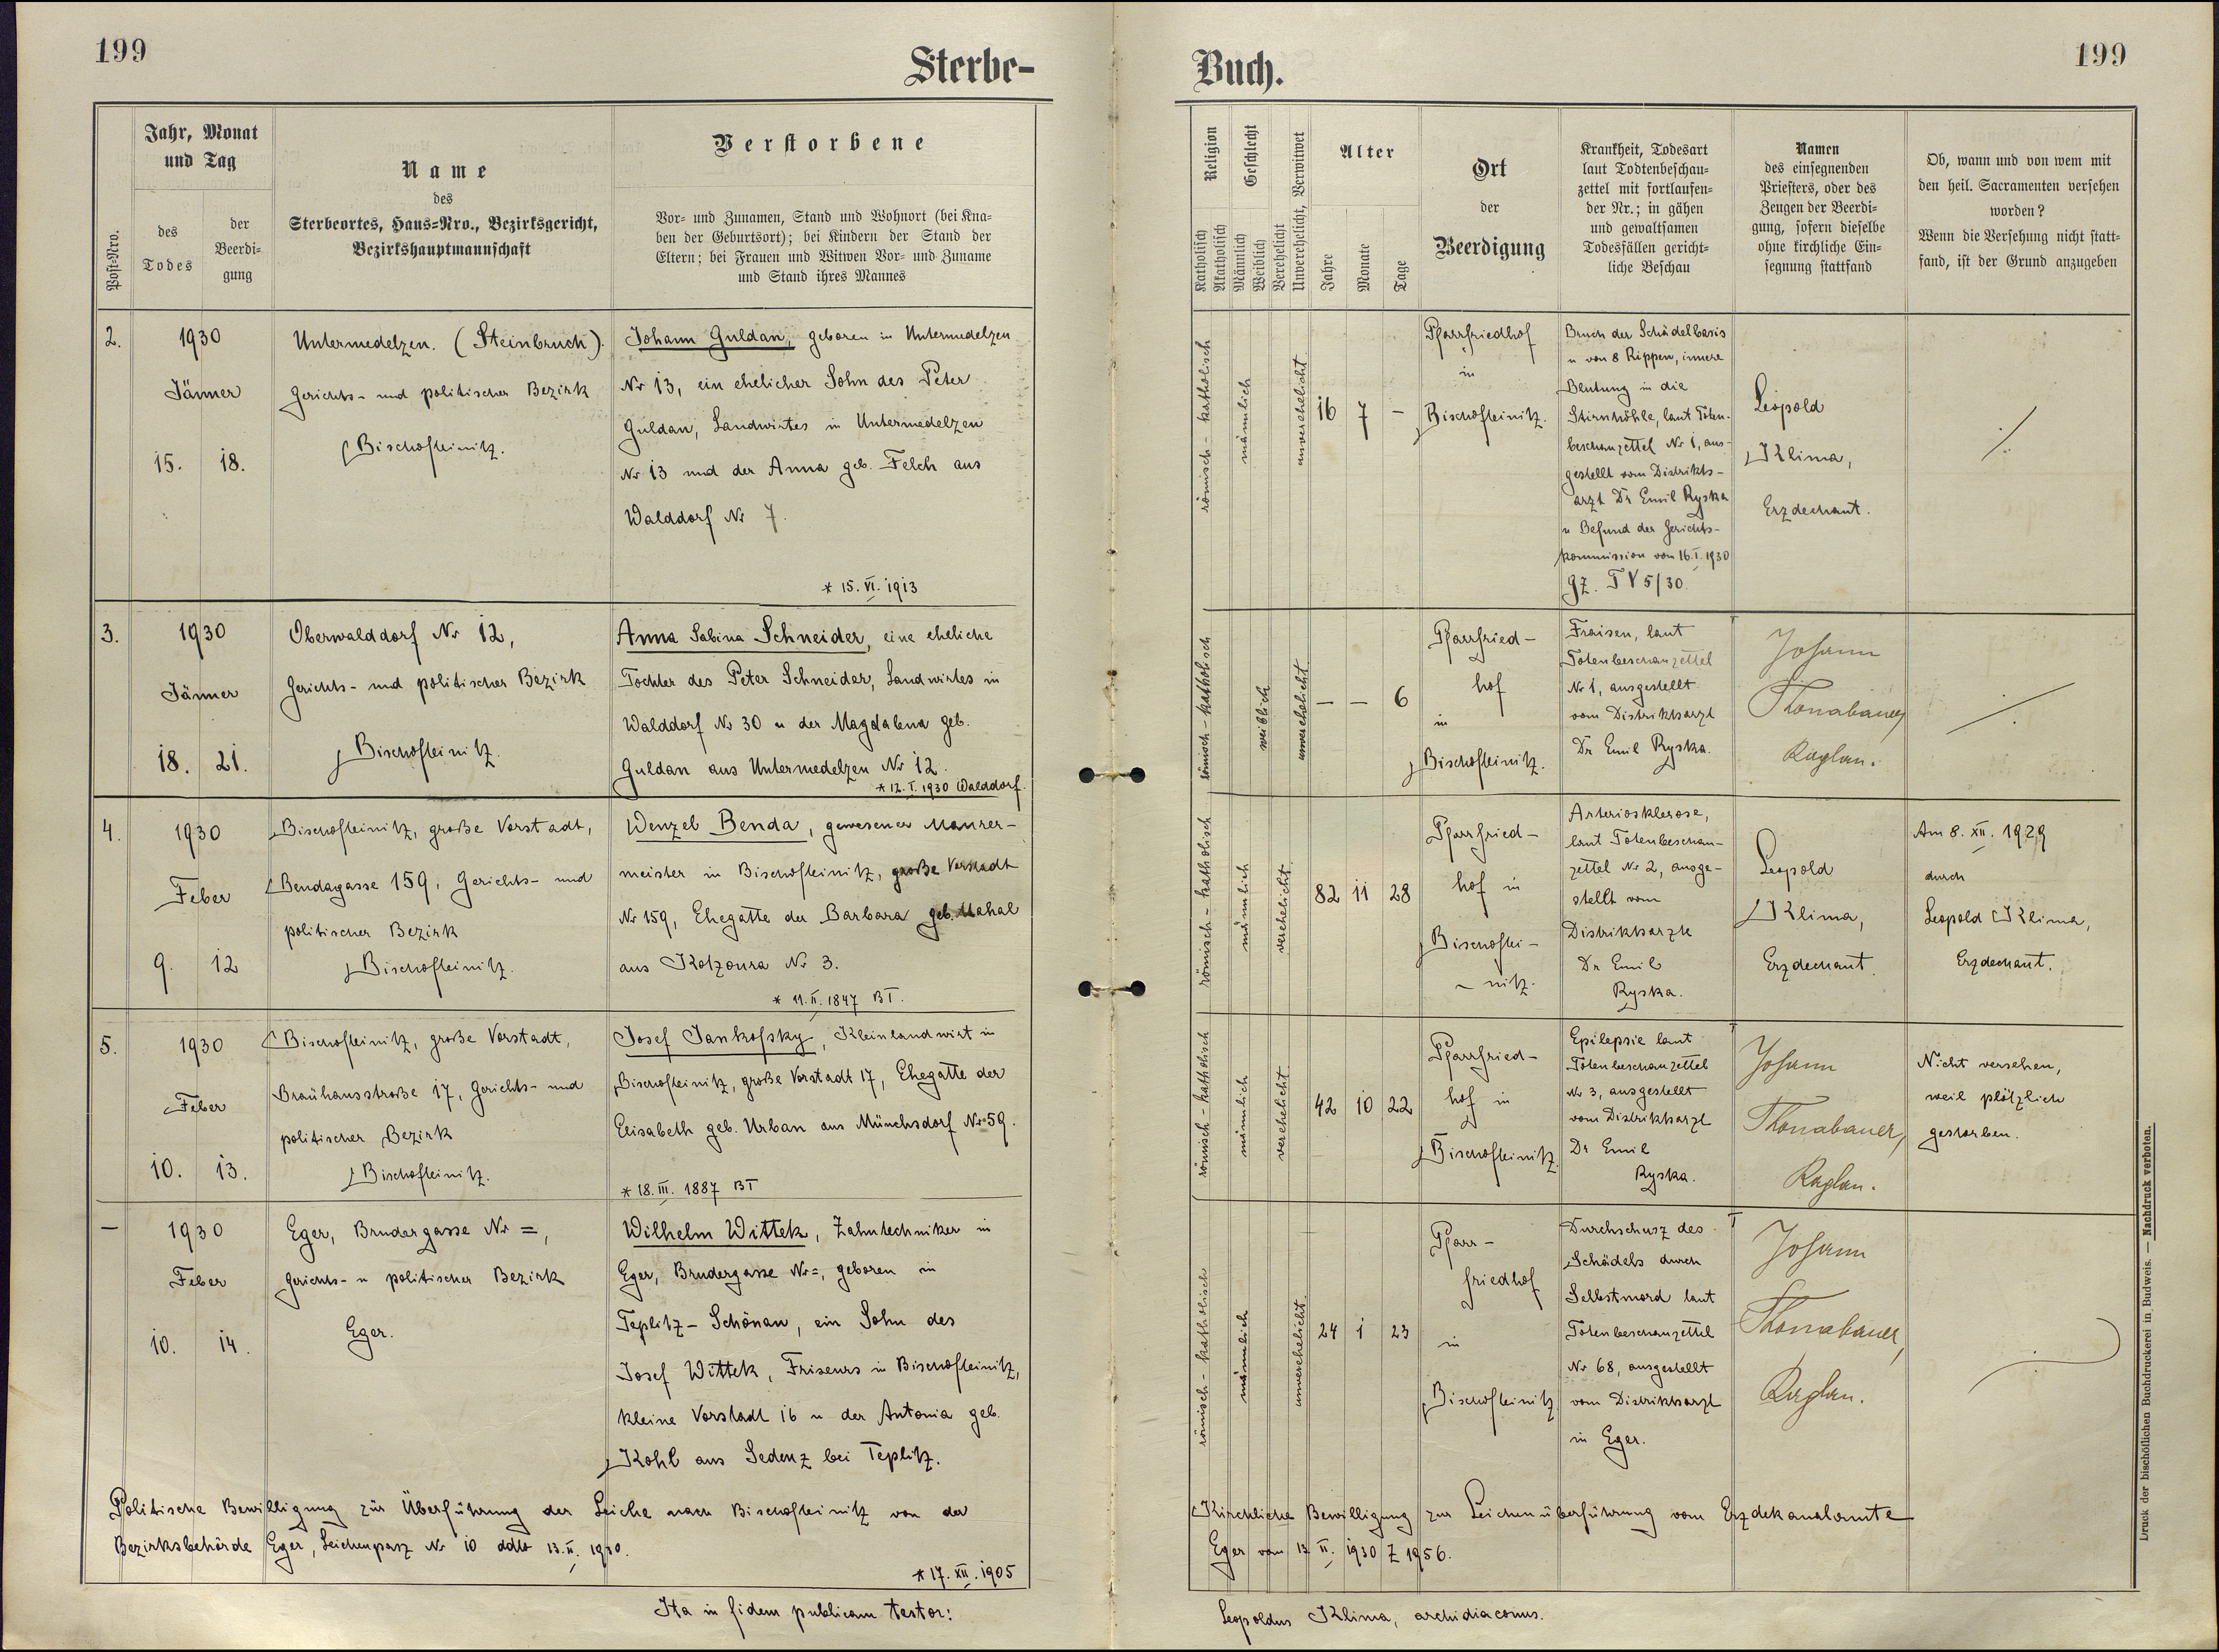 199
Sterbe-
Buch.
199
Post-Nro.
Jahr, Monat
und Tag
des
Todes
der
Beerdi-
gung
Name
des
Sterbeortes, Haus-Nro., Bezirksgericht,
Bezirkshauptmannschaft
Verstorbene
Vor- und Zunamen, Stand und Wohnort (bei Kna-
ben der Geburtsort); bei Kindern der Stand der
Eltern; bei Frauen und Witwen Vor- und Zuname
und Stand ihres Mannes
Religion
Katholisch
Akatholisch
Geschlecht
Männlich
Weiblich
Verehelicht
Unverehelicht, Verwitwet
Alter
Jahre
Monate
Tage
Ort
der
Beerdigung
Krankheit, Todesart
laut Todtenbeschau-
zettel mit fortlaufen-
der Nr.; in gähen
und gewaltsamen
Todesfällen gericht-
liche Beschau
Namen
des einsegnenden
Priesters, oder des
Zeugen der Beerdi-
gung, sofern dieselbe
ohne kirchliche Ein-
segnung stattfand
Ob, wann und von wem mit
den heil. Sacramenten versehen
worden?
Wenn die Versehung nicht statt-
fand, ist der Grund anzugeben
2.
1930
Jänner
15. 18.
Untermedelzen. (Steinbruch).
Gerichts- und politischer Bezirk
Bischofteinitz.
Johann Guldan, geboren in Untermedelzen
Nr 13, ein ehelicher Sohn des Peter
Guldan, Landwirtes in Untermedelzen
Nr 13 und der Anna geb. Felch aus
Walddorf Nr 7.
* 15. VI. 1913
römisch-katholisch
männlich
unverehelicht
16 7 -
Pfarrfriedhof
in
Bischofteinitz.
Bruch der Schädelbasis
u von 8 Rippen, innere
Blutung in die
Stirnhöhle, laut Toten-
beschauzettel Nr 1, aus-
gestellt vom Distrikts-
arzt Dr Emil Ryska
u Befund der Gerichts-
kommission vom 16. I. 1930
Gz. T V 5/30.
Leopold
Klima,
Erzdechant.
3.
1930
Jänner
18. 21.
Oberwalddorf Nr 12,
Gerichts- und politischer Bezirk
Bischofteinitz.
Anna Sabina Schneider, eine eheliche
Tochter des Peter Schneider, Landwirtes in
Walddorf Nr 30 u der Magdalena geb.
Guldan aus Untermedelzen Nr 12.
* 12. I. 1930 Walddorf.
römisch-katholisch
weiblich
unverehelicht
- - 6
Pfarrfried-
hof
in
Bischofteinitz.
Fraisen, laut
Totenbeschauzettel
Nr 1, ausgestellt
vom Distriktsarzt
Dr Emil Ryska.
Johann
Thonabauer,
Kaplan.
4.
1930
Feber
9. 12
Bischofteinitz, große Vorstadt,
Bendagasse 159, Gerichts- und
politischer Bezirk
Bischofteinitz.
Wenzel Benda, gewesener Maurer-
meister in Bischofteinitz, große Vorstadt
Nr 159, Ehegatte der Barbara geb. Mahal
aus Kotzoura Nr 3.
* 11. II. 1847 BT.
römisch-katholisch
männlich
verehelicht
82 11 28
Pfarrfried-
hof in
Bischoftei-
nitz.
Arteriosklerose,
laut Totenbeschau-
zettel Nr 2, ausge-
stellt vom
Distriktsarzte
Dr Emil
Ryska.
Leopold
Klima,
Erzdechant.
Am 8. XII. 1929
durch
Leopold Klima,
Erzdechant.
5.
1930
Feber
10. 13.
Bischofteinitz, große Vorstadt,
Bräuhausstraße 17, Gerichts- und
politischer Bezirk
Bischofteinitz.
Josef Jankofsky, Kleinlandwirt in
Bischofteinitz, große Vorstadt 17, Ehegatte der
Elisabeth geb. Urban aus Münchsdorf Nr 59.
* 18. III. 1887 BT
römisch-katholisch
männlich
verehelicht
42 10 22
Pfarrfried-
hof in
Bischofteinitz.
Epilepsie laut
Totenbeschauzettel
Nr 3, ausgestellt
vom Distriktsarzt
Dr Emil
Ryska.
Johann
Thonabauer,
Kaplan.
Nicht versehen,
weil plötzlich
gestorben.
-
1930
Feber
10. 14.
Eger, Brudergasse Nr =,
Gerichts- u politischer Bezirk
Eger.
Wilhelm Wittek, Zahntechniker in
Eger, Brudergasse Nr =, geboren in
Teplitz-Schönau, ein Sohn des
Josef Wittek, Friseurs in Bischofteinitz,
kleine Vorstadt 16 u der Antonia geb.
Kohl aus Sedenz bei Teplitz.
römisch-katholisch
männlich
unverehelicht
24 1 23
Pfarr-
friedhof
in
Bischofteinitz
Durchschusz des
Schädels durch
Selbstmord laut
Totenbeschauzettel
Nr 68, ausgestellt
vom Distriktsarzt
in Eger.
Johann
Thonabauer,
Kaplan.
Politische Bewilligung zur Überführung der Leiche nach Bischofteinitz von der
Bezirksbehörde Eger, Leichenpasz Nr 10 ddto 13. II. 1930.
* 17. XII. 1905
Kirchliche Bewilligung zur Leichenüberführung vom Erzdekanalamte
Eger vom 13 II. 1930 Z 1956.
Ita in fidem publicam testor:
Leopoldus Klima, archidiaconus.
Druck der bischöflichen Buchdruckerei in Budweis. — Nachdruck verboten.